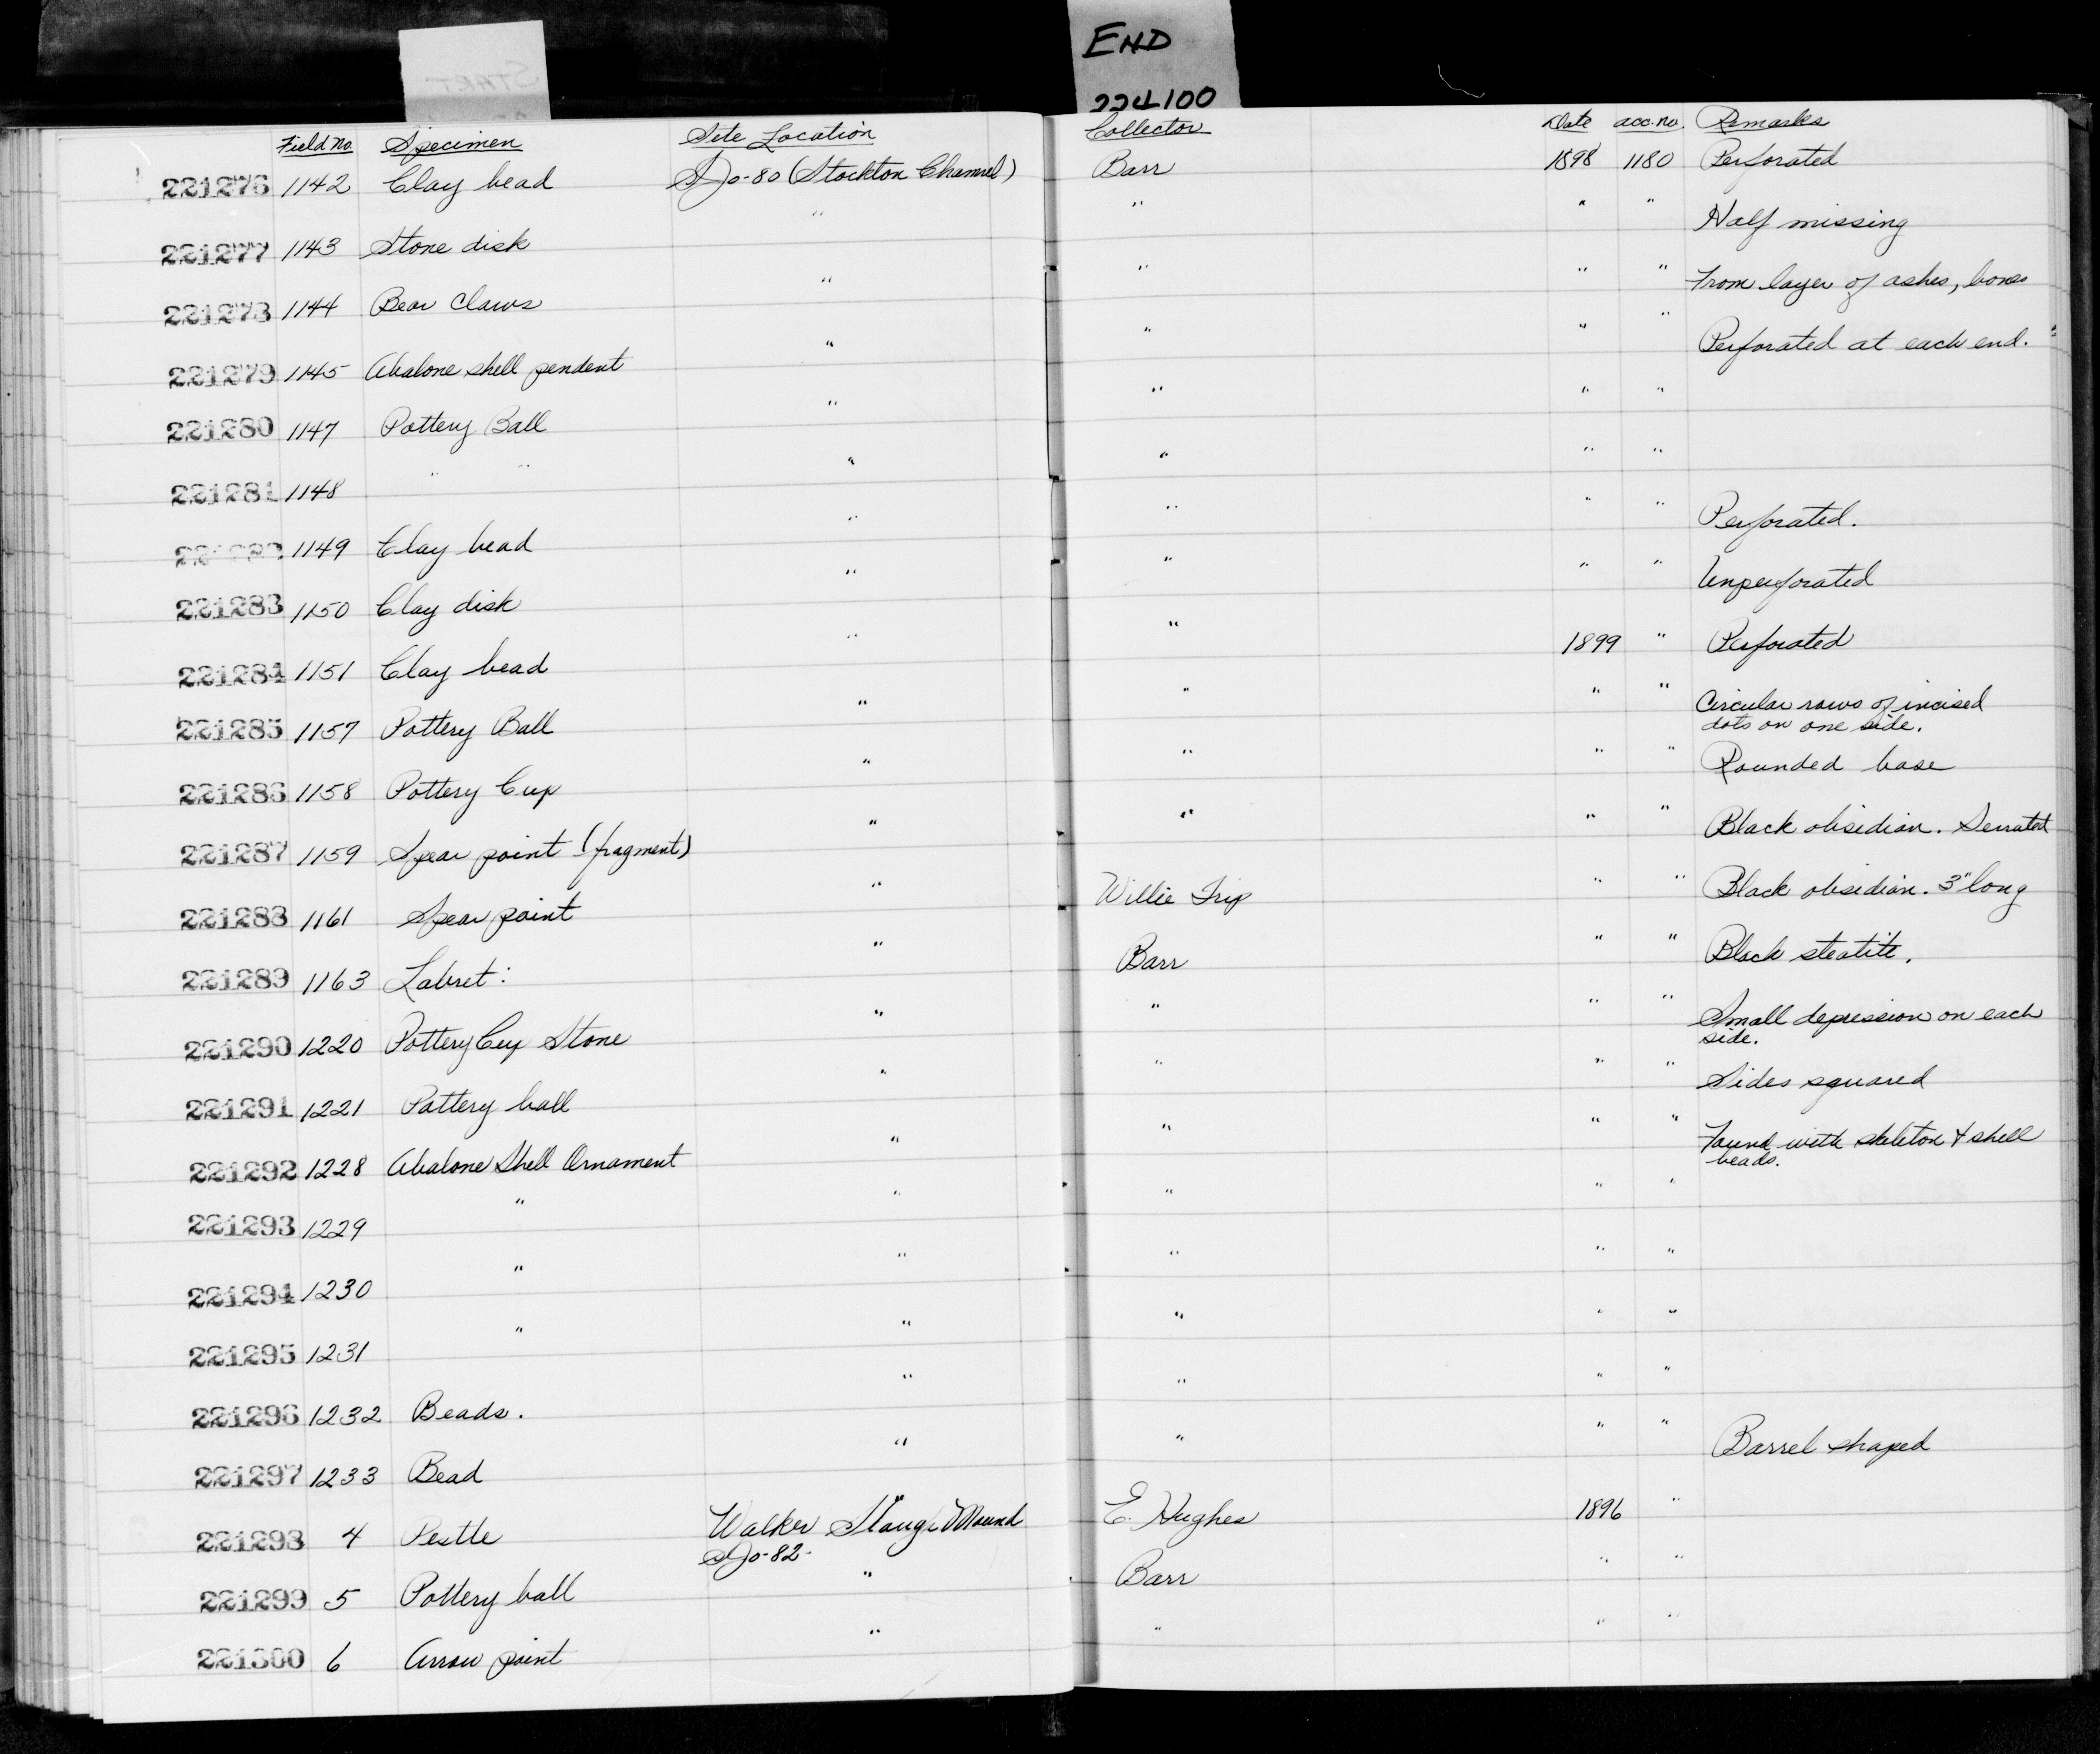 START
END
224100
Field No. Specimen Site Location Collector Date acc. no. Remarks
221276 1142 Clay bead SJo-80 (Stockton Channel) Barr 1898 1180 Perforated
221277 1143 Stone disk " " " " Half missing
221278 1144 Bear Claws " " " " From layer of ashes, bones
221279 1145 Abalone shell pendent " " " " Perforated at each end.
221280 1147 Pottery Ball " " " "
221281 1148 " " " " " "
221282 1149 Clay bead " " " " Perforated.
221283 1150 Clay disk " " " " Unperforated
221284 1151 Clay bead " " 1899 " Perforated
221285 1157 Pottery Ball " " " " Circular rows of incised
dots on one side.
221286 1158 Pottery Cup " " " " Rounded base
221287 1159 Spear point (fragment) " " " " Black obsidian. Serrated
221288 1161 Spear point " Willie Trip " " Black obsidian. 3" long
221289 1163 Labret: " Barr " " Black steatite.
221290 1220 Pottery Cup Stone " " " " Small depression on each
side.
221291 1221 Pottery ball " " " " Sides squared
221292 1228 Abalone Shell Ornament " " " " Found with skeleton & shell
beads.
221293 1229 " " " " "
221294 1230 " " " " "
221295 1231 " " " " "
221296 1232 Beads. " " " "
221297 1233 Bead " " " " Barrel shaped
221298 4 Pestle Walker Slough Mound E. Hughes 1896 "
SJo-82-
221299 5 Pottery ball " Barr " "
221300 6 Arrow point " " " "